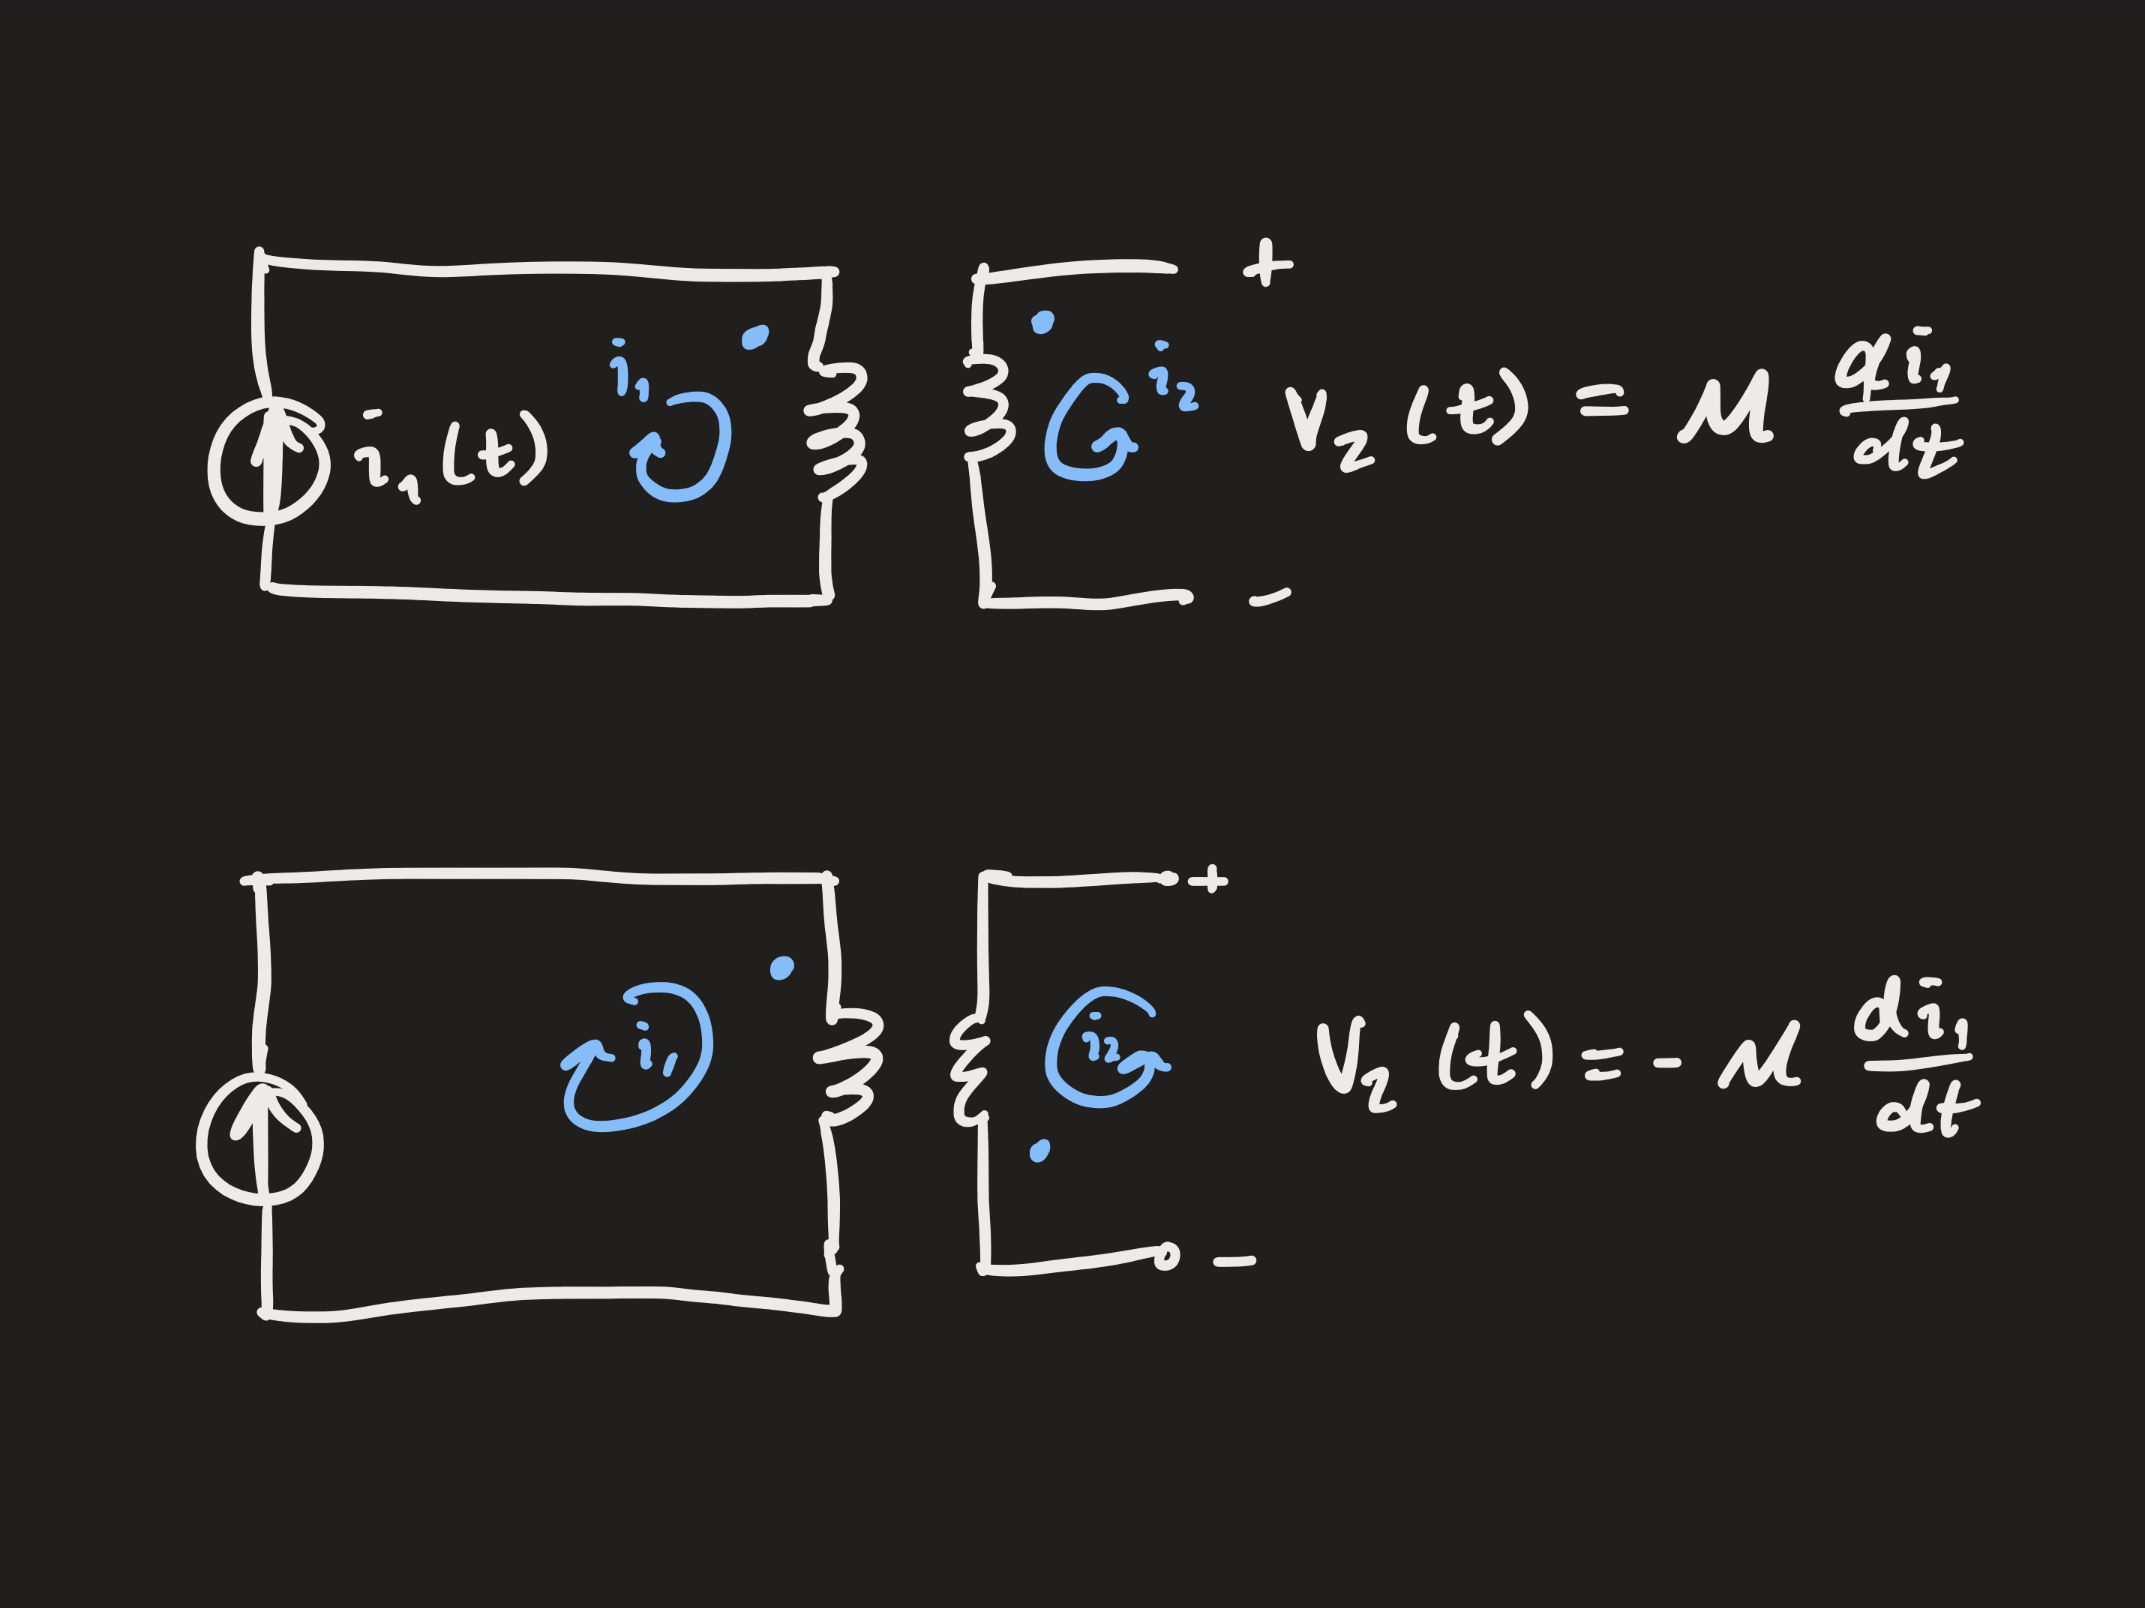 +
i₁
i₂
i₁(t)
V₂(t) = M di₁/dt
-
+
i₁
i₂
V₂(t) = - M di₁/dt
-